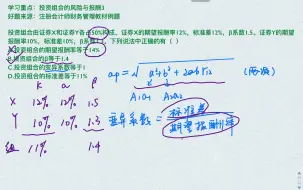 学习重点：投资组合的风险与报酬3
好题来源：注册会计师财务管理教材例题
投资组合由证券X和证券Y各占50%构成。证券X的期望报酬率12%，标准差12%，β系数1.5。证券Y的期望
报酬率10%，标准差10%，β系数1.3。下列说法中正确的有（ ）
A.投资组合的期望报酬率等于14%
B.投资组合的β等于1.4
C.投资组合的变异系数等于1
D.投资组合的标准差等于11%
(两项)
A1σ1 A2σ2
X 12% 12% 1.5
Y 10% 10% 1.3
11% 1.4
变异系数 = 标准差
期望报酬率